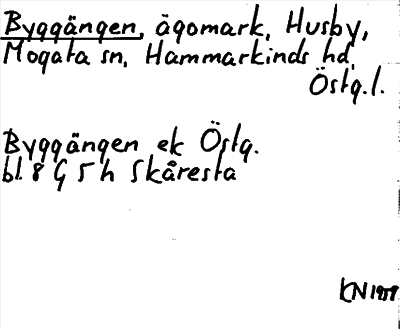 Byggängen, ägomark, Husby,
Mogata sn, Hammarkinds hd,
Östg.l.
Byggängen ek Östg.
bl. 8 G 5 h Skåresta
KN 1959